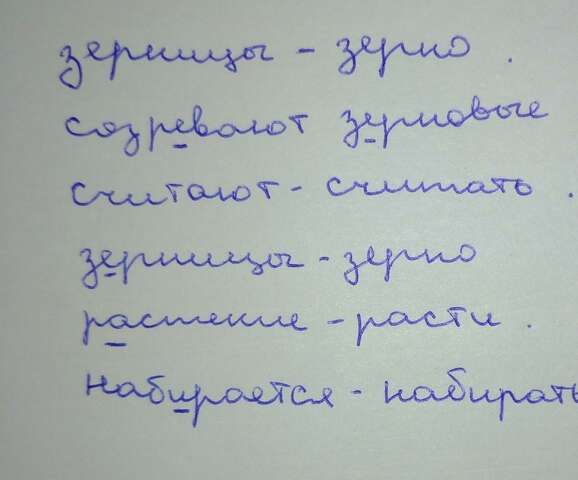 зерницы - зерно .
созревают зерновые
считают - считать .
зерницы - зерно
растение - расти .
набирается - набирать